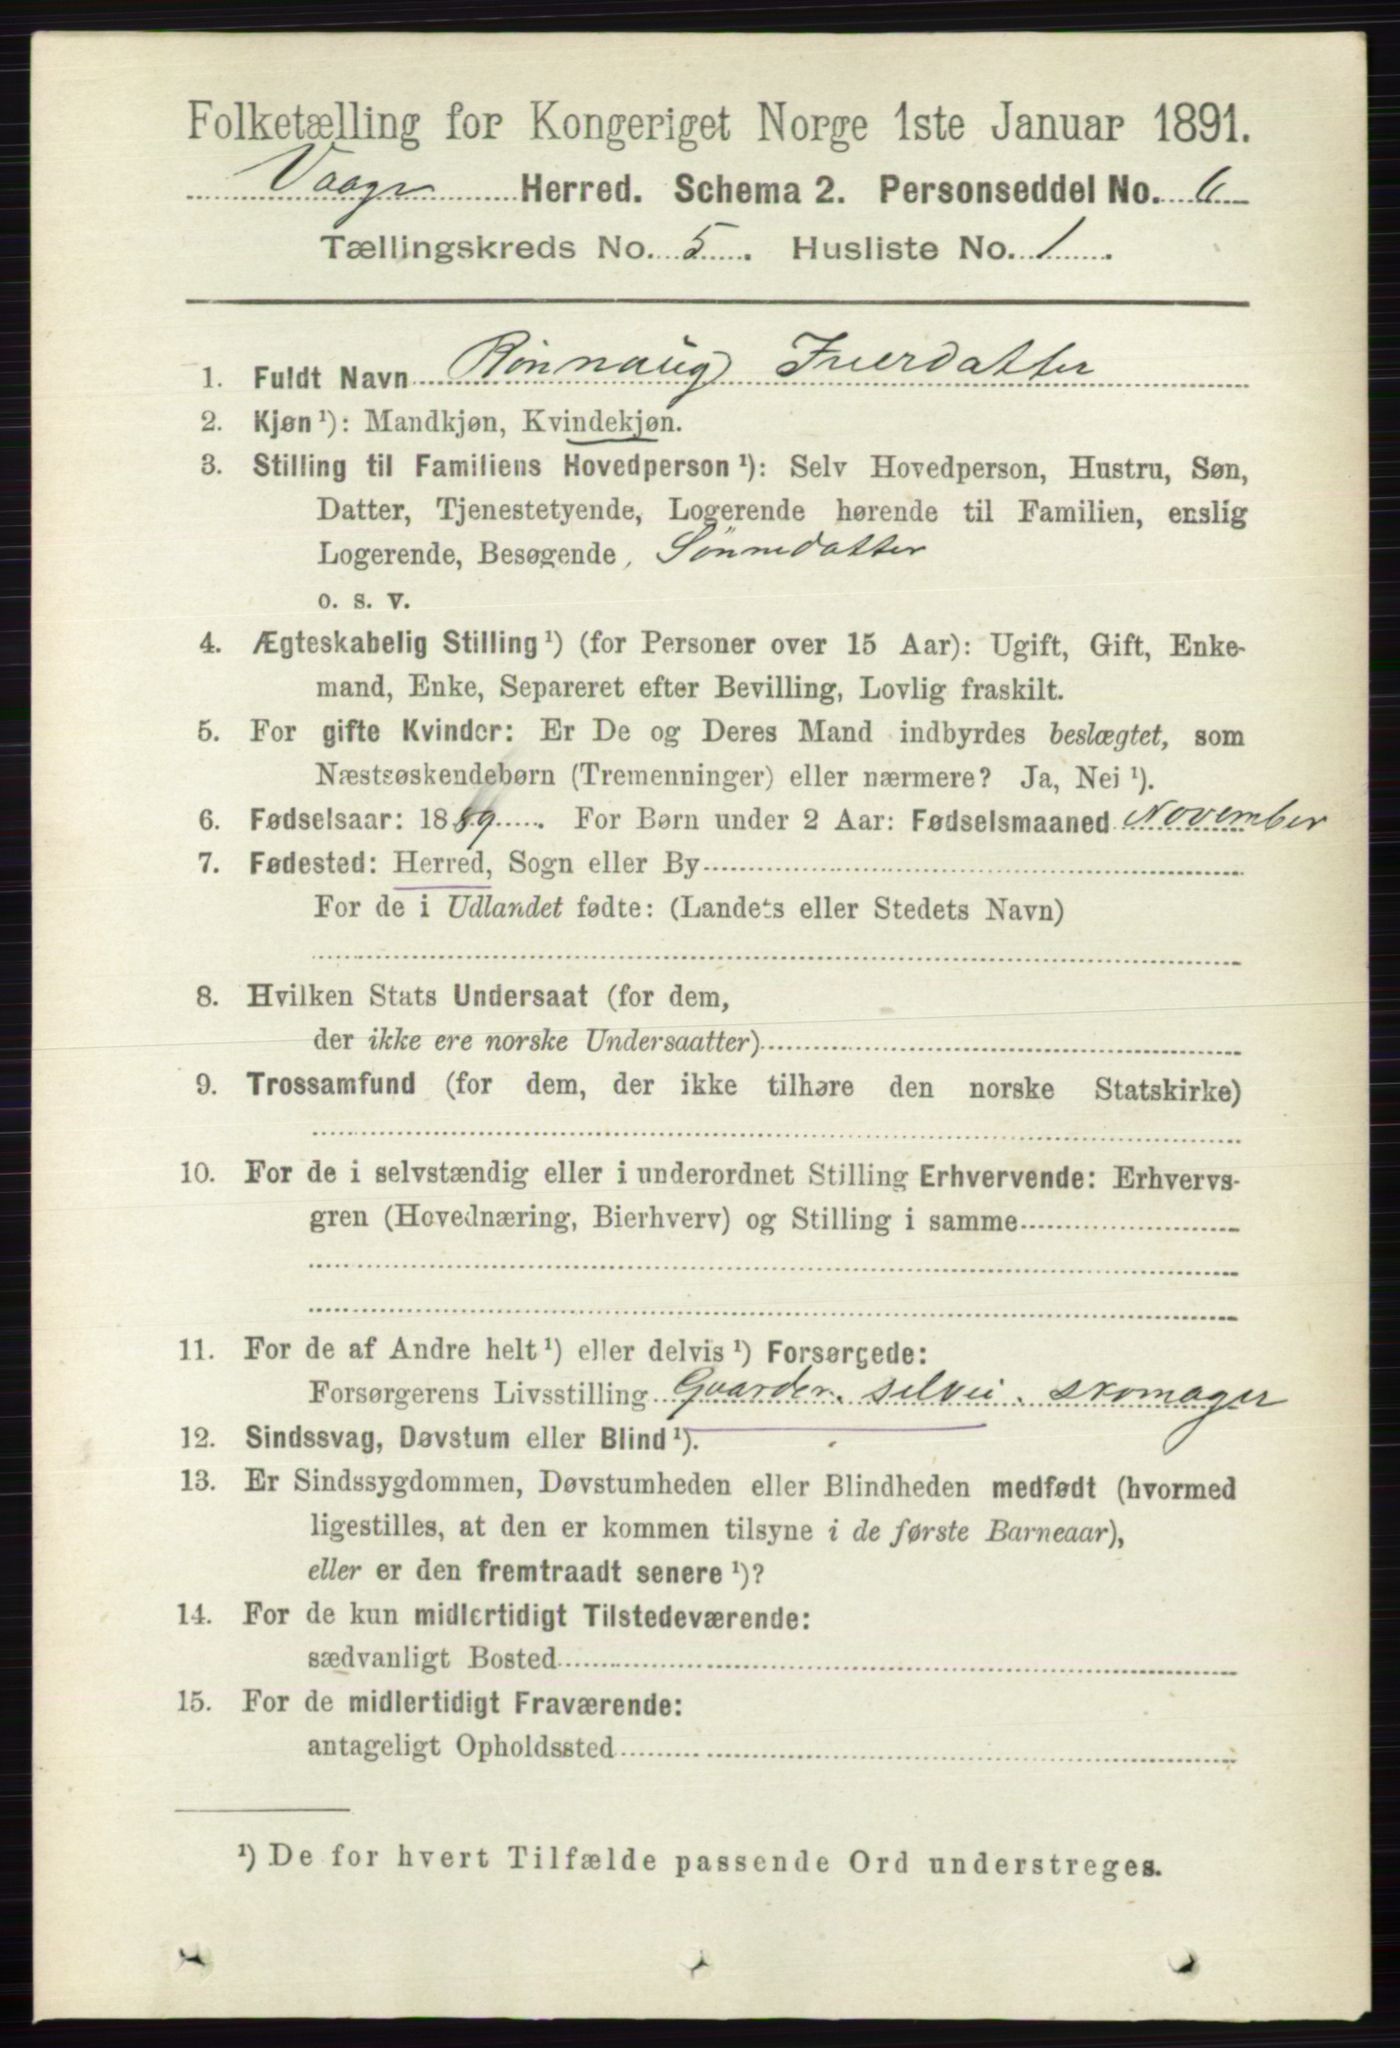 Folketælling for Kongeriget Norge 1ste Januar 1891.
Vaage Herred. Schema 2. Personseddel No. 6
Tællingskreds No. 5. Husliste No. 1.
1. Fuldt Navn Rønnaug Iverdatter
2. Kjøn ¹): Mandkjøn, Kvindekjøn.
3. Stilling til Familiens Hovedperson ¹): Selv Hovedperson, Hustru, Søn,
Datter, Tjenestetyende, Logerende hørende til Familien, enslig
Logerende, Besøgende, Sønnedatter
o. s. v.
4. Ægteskabelig Stilling ¹) (for Personer over 15 Aar): Ugift, Gift, Enke-
mand, Enke, Separeret efter Bevilling, Lovlig fraskilt.
5. For gifte Kvinder: Er De og Deres Mand indbyrdes beslægtet, som
Næstsøskendebørn (Tremenninger) eller nærmere? Ja, Nei ¹).
6. Fødselsaar: 1889. For Børn under 2 Aar: Fødselsmaaned November
7. Fødested: Herred, Sogn eller By
For de i Udlandet fødte: (Landets eller Stedets Navn)
8. Hvilken Stats Undersaat (for dem,
der ikke ere norske Undersaatter)
9. Trossamfund (for dem, der ikke tilhøre den norske Statskirke)
10. For de i selvstændig eller i underordnet Stilling Erhvervende: Erhvervs-
gren (Hovednæring, Bierhverv) og Stilling i samme
11. For de af Andre helt ¹) eller delvis ¹) Forsørgede:
Forsørgerens Livsstilling Gaardbr. selvei. skomager
12. Sindssvag, Døvstum eller Blind ¹).
13. Er Sindssygdommen, Døvstumheden eller Blindheden medfødt (hvormed
ligestilles, at den er kommen tilsyne i de første Barneaar),
eller er den fremtraadt senere ¹)?
14. For de kun midlertidigt Tilstedeværende:
sædvanligt Bosted
15. For de midlertidigt Fraværende:
antageligt Opholdssted
¹) De for hvert Tilfælde passende Ord understreges.